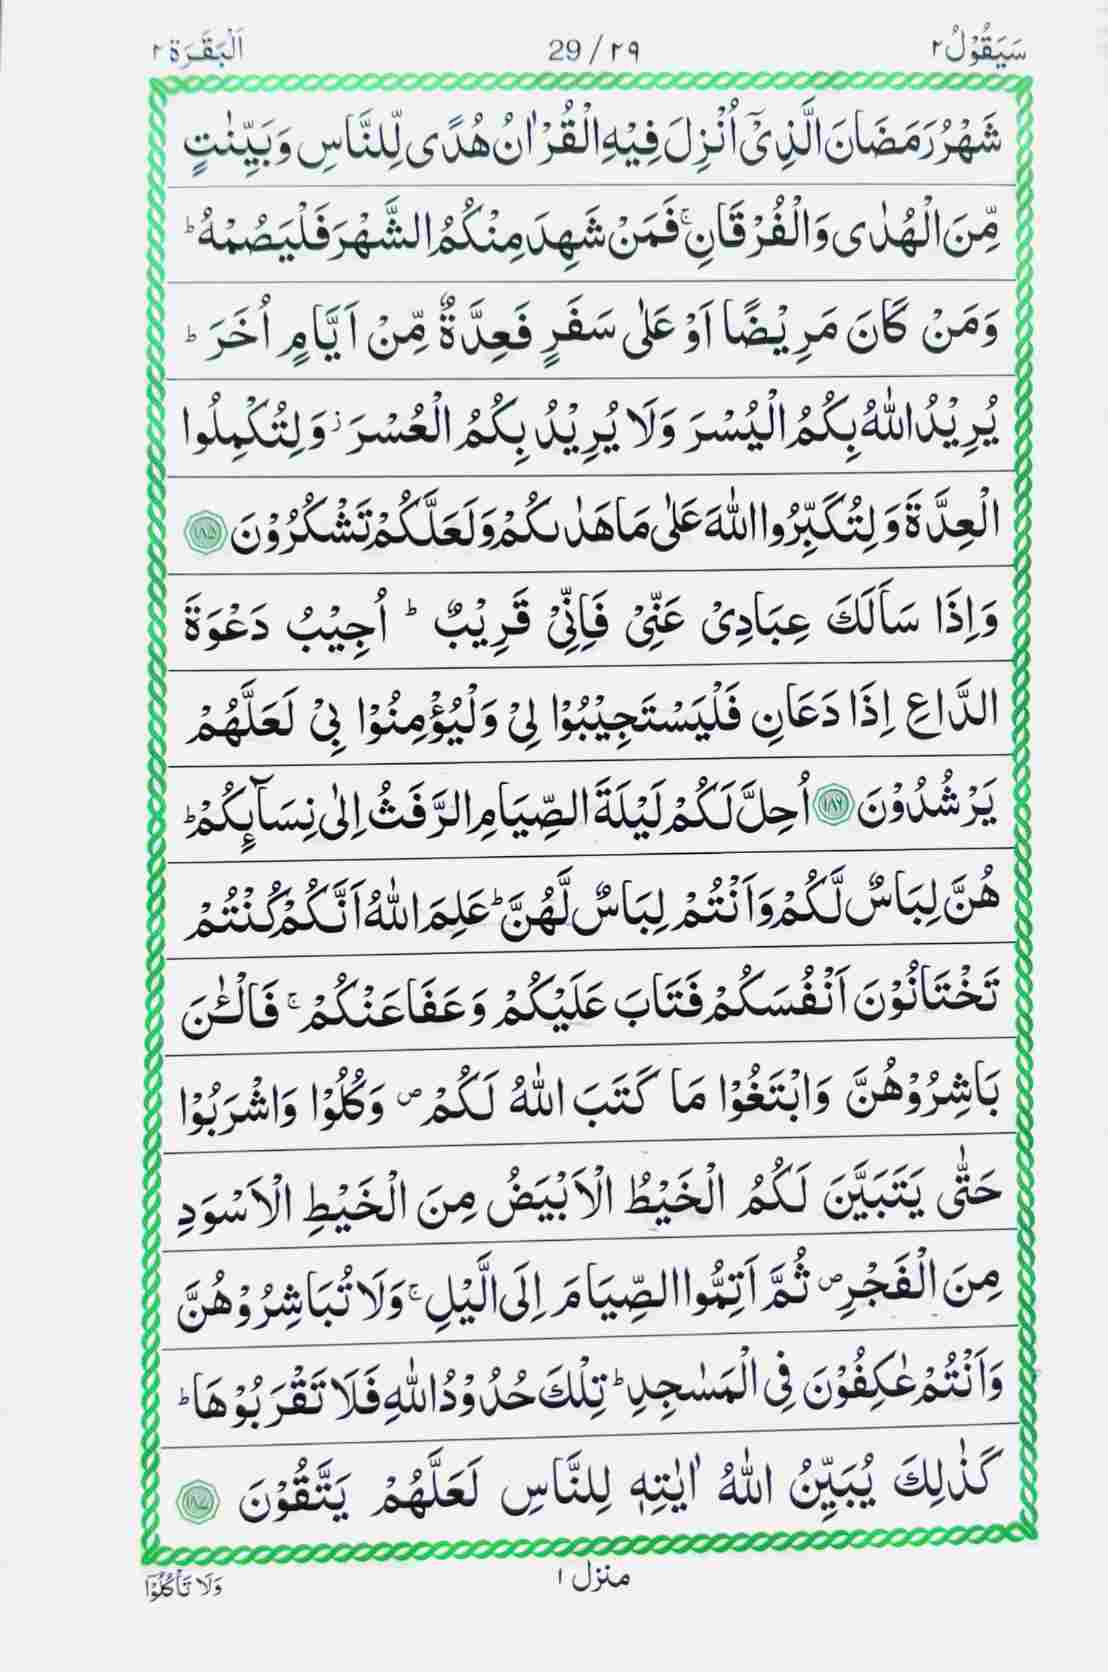 سَیَقُوْلُ ٢ ٢٩ / 29 اَلْبَقَرَة ٢
شَهْرُ رَمَضَانَ الَّذِیْۤ اُنْزِلَ فِیْهِ الْقُرْاٰنُ هُدًی لِّلنَّاسِ وَ بَیِّنٰتٍ
مِّنَ الْهُدٰی وَ الْفُرْقَانِ ۚ فَمَنْ شَهِدَ مِنْكُمُ الشَّهْرَ فَلْیَصُمْهُ ؕ
وَ مَنْ كَانَ مَرِیْضًا اَوْ عَلٰی سَفَرٍ فَعِدَّةٌ مِّنْ اَیَّامٍ اُخَرَ ؕ
یُرِیْدُ اللّٰهُ بِكُمُ الْیُسْرَ وَ لَا یُرِیْدُ بِكُمُ الْعُسْرَ ؗ وَ لِتُكْمِلُوا
الْعِدَّةَ وَ لِتُكَبِّرُوا اللّٰهَ عَلٰی مَا هَدٰىكُمْ وَ لَعَلَّكُمْ تَشْكُرُوْنَ ﴿١٨٥﴾
وَ اِذَا سَاَلَكَ عِبَادِیْ عَنِّیْ فَاِنِّیْ قَرِیْبٌ ؕ اُجِیْبُ دَعْوَةَ
الدَّاعِ اِذَا دَعَانِ فَلْیَسْتَجِیْبُوْا لِیْ وَ لْیُؤْمِنُوْا بِیْ لَعَلَّهُمْ
یَرْشُدُوْنَ ﴿١٨٦﴾ اُحِلَّ لَكُمْ لَیْلَةَ الصِّیَامِ الرَّفَثُ اِلٰی نِسَآئِكُمْ ؕ
هُنَّ لِبَاسٌ لَّكُمْ وَ اَنْتُمْ لِبَاسٌ لَّهُنَّ ؕ عَلِمَ اللّٰهُ اَنَّكُمْ كُنْتُمْ
تَخْتَانُوْنَ اَنْفُسَكُمْ فَتَابَ عَلَیْكُمْ وَ عَفَا عَنْكُمْ ۚ فَالْـٰٔنَ
بَاشِرُوْهُنَّ وَ ابْتَغُوْا مَا كَتَبَ اللّٰهُ لَكُمْ ۪ وَ كُلُوْا وَ اشْرَبُوْا
حَتّٰی یَتَبَیَّنَ لَكُمُ الْخَیْطُ الْاَبْیَضُ مِنَ الْخَیْطِ الْاَسْوَدِ
مِنَ الْفَجْرِ ۪ ثُمَّ اَتِمُّوا الصِّیَامَ اِلَی الَّیْلِ ۚ وَ لَا تُبَاشِرُوْهُنَّ
وَ اَنْتُمْ عٰكِفُوْنَ فِی الْمَسٰجِدِ ؕ تِلْكَ حُدُوْدُ اللّٰهِ فَلَا تَقْرَبُوْهَا ؕ
كَذٰلِكَ یُبَیِّنُ اللّٰهُ اٰیٰتِهٖ لِلنَّاسِ لَعَلَّهُمْ یَتَّقُوْنَ ﴿١٨٧﴾
منزل ١
وَلَا تَاْكُلُوْۤا